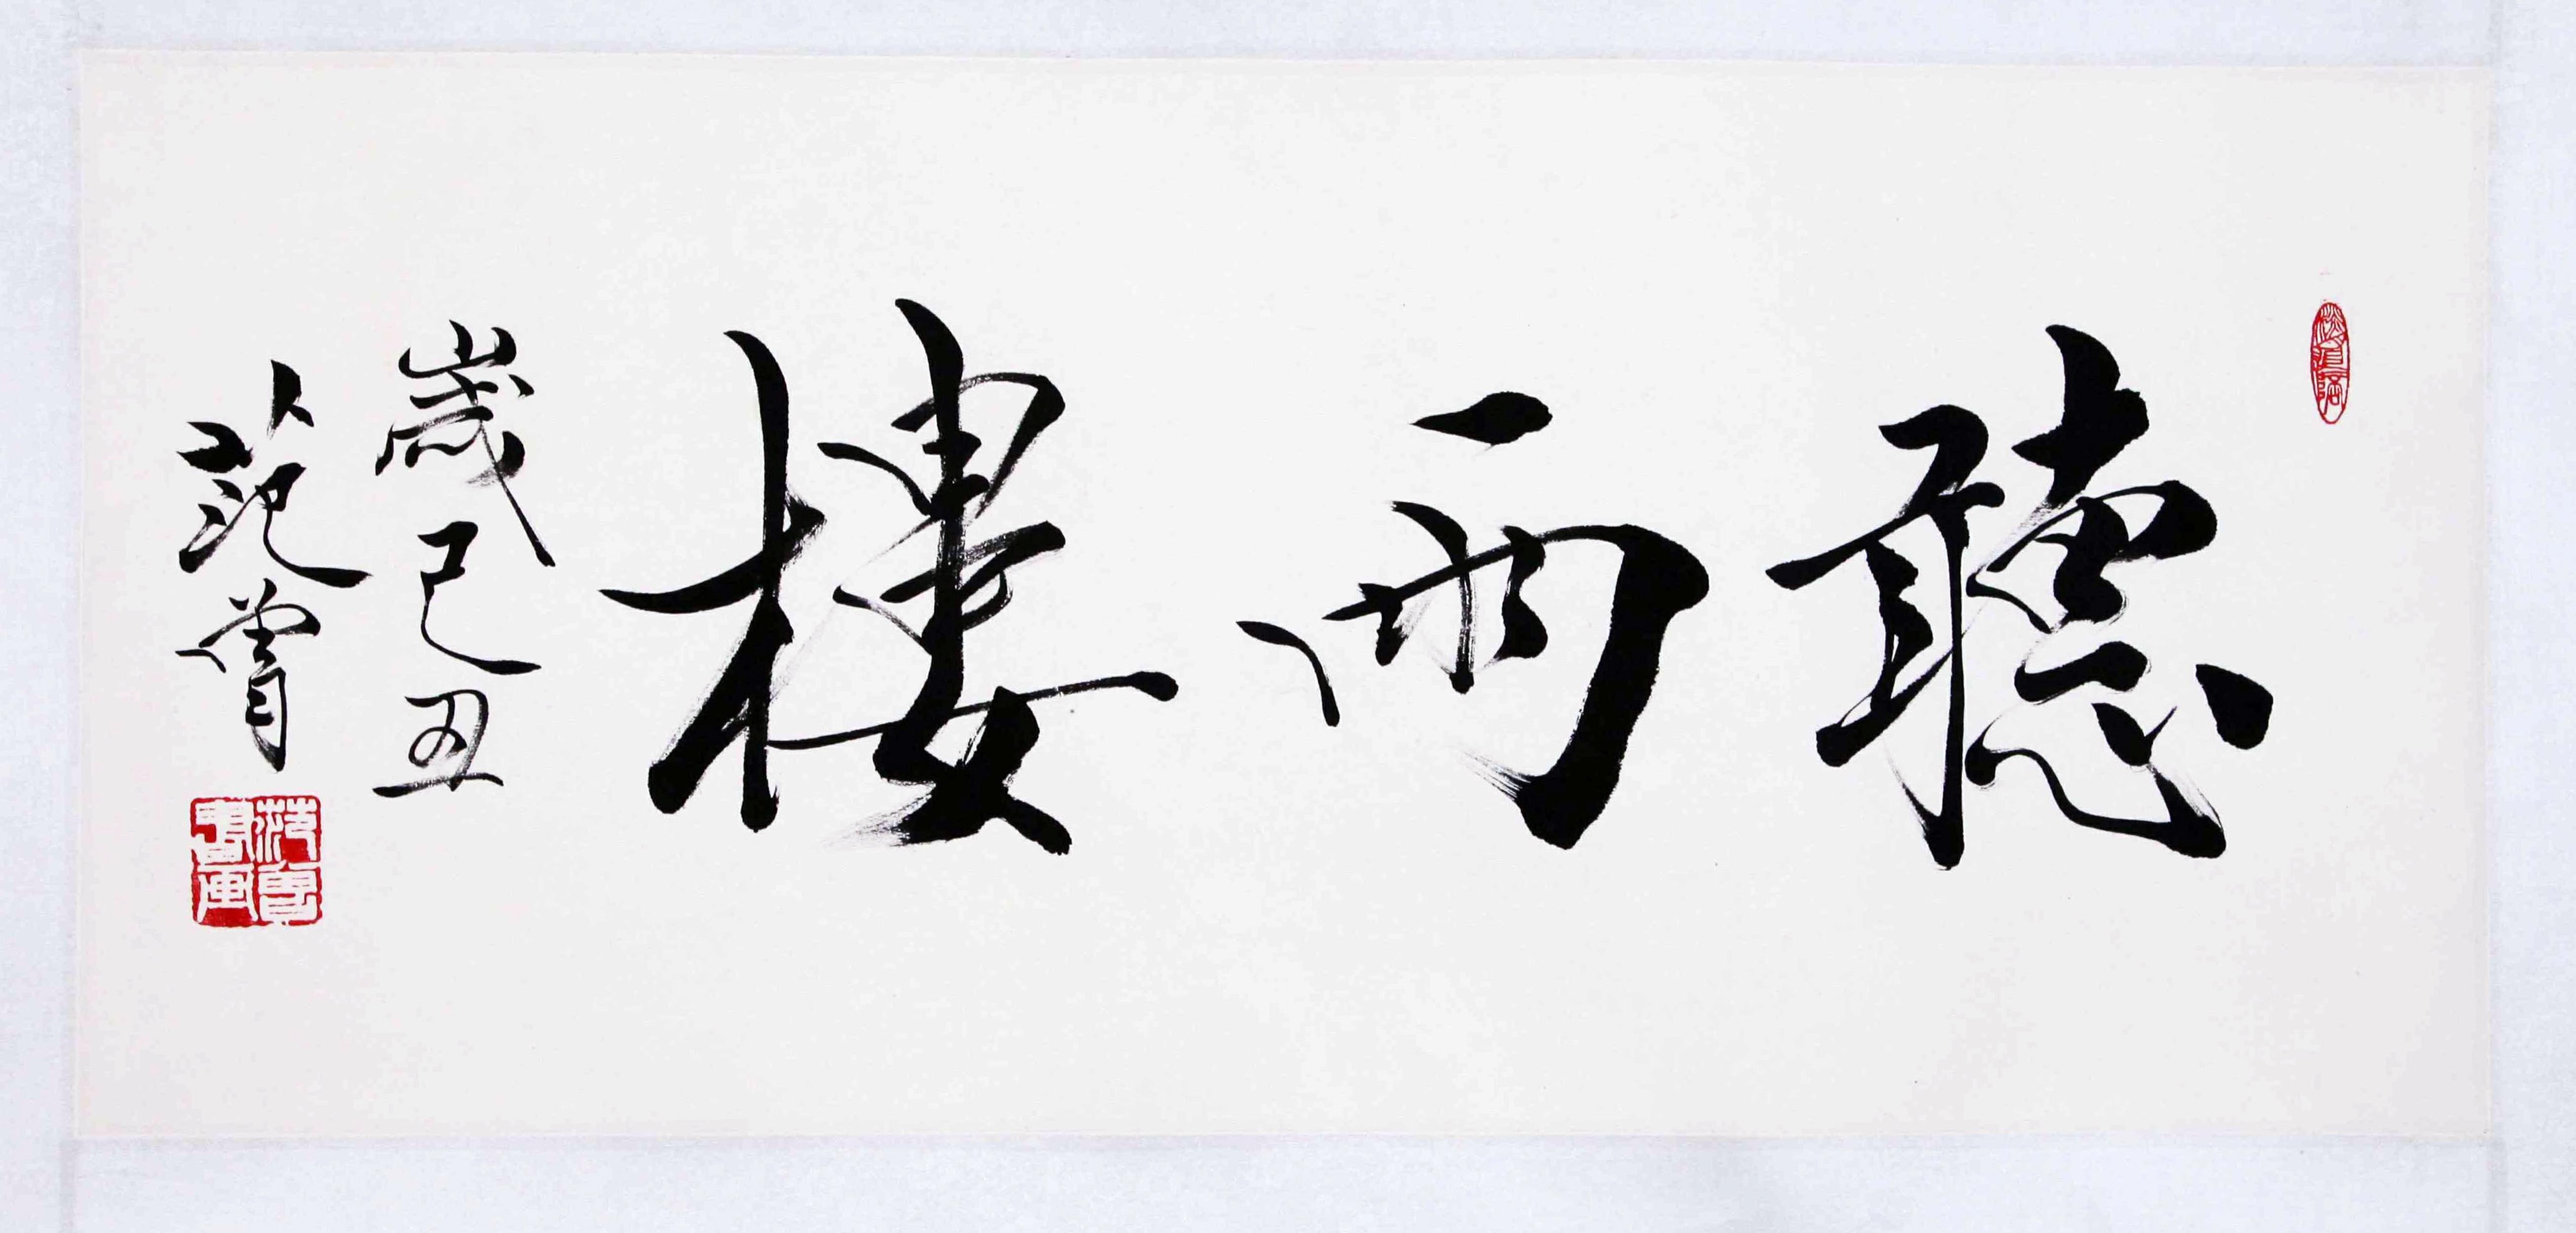 聽雨樓
歲己丑
范曾